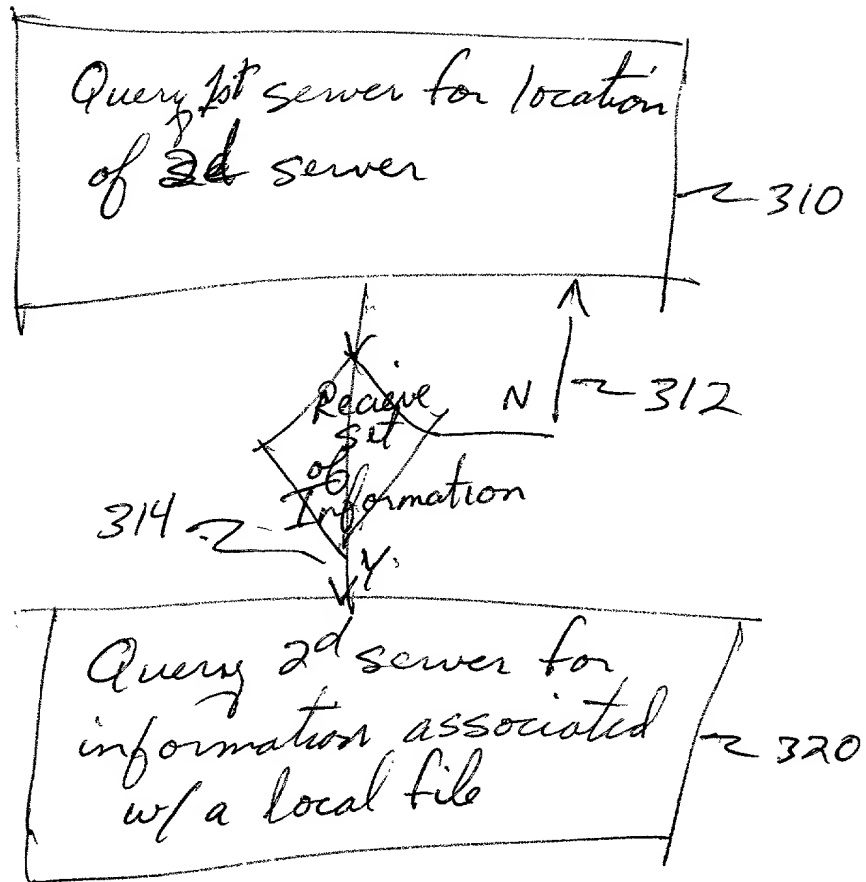 Query 1st server for location
of 2d server
310
Recieve
set
of
Information
N
312
314
Y.
Query 2d server for
information associated
w/ a local file
320